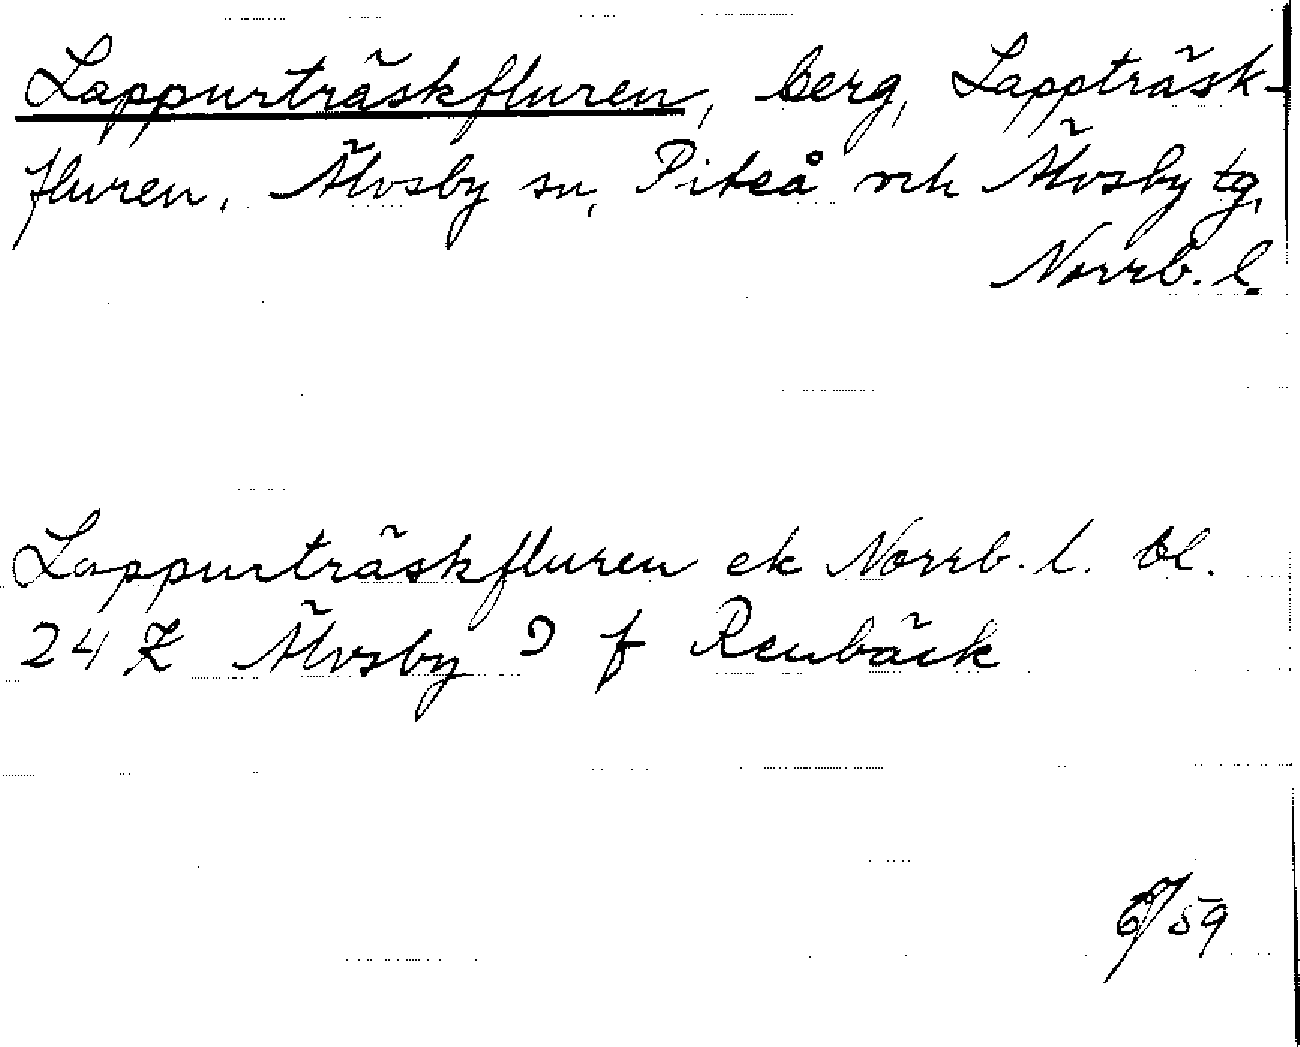 Lappurträskfluren, berg, Lappträsk-
fluren, Älvsby sn, Piteå och Älvsby tg,
Norrb. l.
Lappurträskfluren ek Norrb. l. bl.
24 K Älvsby 9 f Renbäck
59